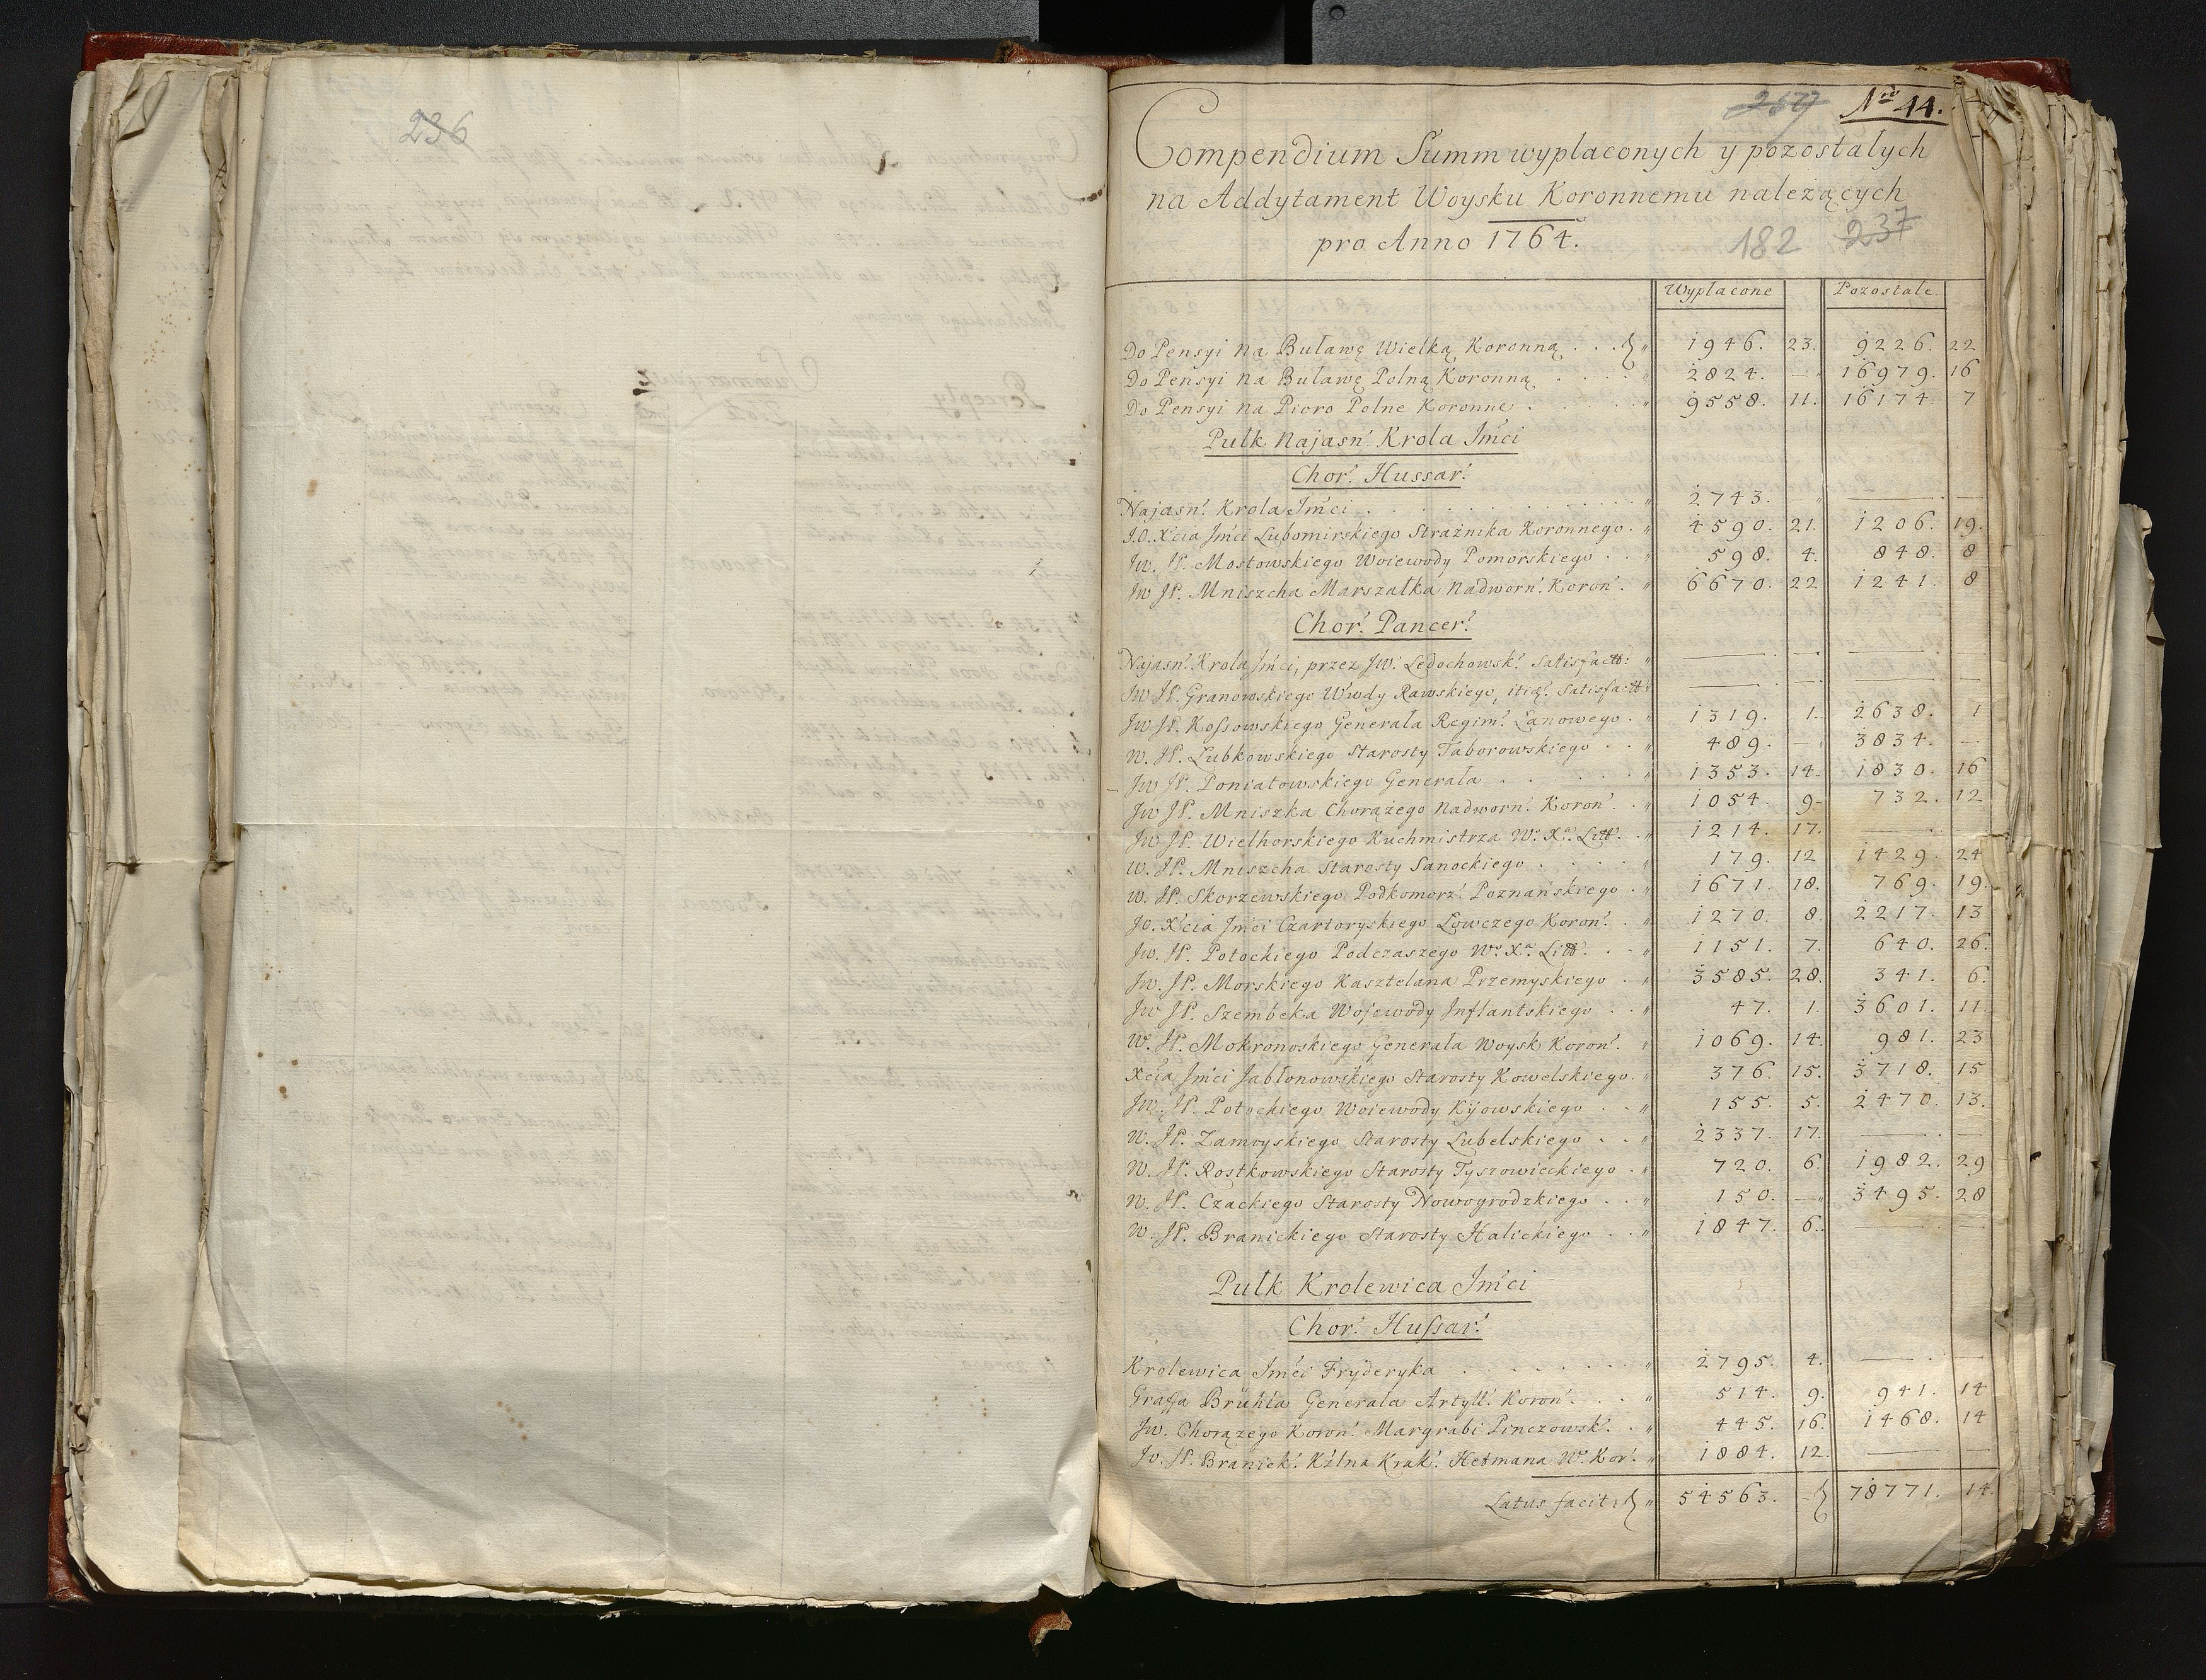 236
257 Nro 44.
Compendium Summ wypłaconych y pozostałych
na Addytament Woysku Koronnemu należących
pro Anno 1764. 182 237
Wypłacone Pozostałe
Do Pensyi na Buławę Wielką Koronną . . . " 1946. 23. 9226. 22
Do Pensyi na Buławę Polną Koronną . . . . " 2824. — 16979. 16
Do Pensyi na Pioro Polne Koronne . . . . . " 9558. 11. 16174. 7
Pułk Najasń: Krola Jmći
Chor: Hussar:
Najasń: Krola Jmći . . . . . . . . . " 2743. — — —
J.O. Xcia Jmći Lubomirskiego Strażnika Koronnego . " 4590. 21. 1206. 19.
Jw. JP. Mostowskiego Woiewody Pomorskiego . . " 598. 4. 848. 8
Jw JP. Mniszcha Marszałka Nadworń: Koroń: . " 6670. 22 1241. 8
Chor: Pancer:
Najasń: Krola Jmći, przez Jw: Ledochowsk: Satisfact: " — — — —
Jw JP. Granowskiego Wwdy Rawskiego, itid: Satisfact " — — — —
Jw JP. Kossowskiego Generała Regim: Łanowego . " 1319. 1. 2638. 1
W. JP. Lubkowskiego Starosty Taborowskiego . . " 489. — 3834. —
Jw JP. Poniatowskiego Generała . . . . . " 1353. 14. 1830. 16
Jw JP. Mniszka Chorążego Nadworń: Koroń: . . " 1054. 9- 732. 12
Jw JP. Wielhorskiego Kuchmistrza W: X: Litt: . " 1214. 17. — —
W. JP. Mniszcha Starosty Sanockiego . . . . " 179. 12 1429. 24
W. JP. Skorzewskiego Podkomorz: Poznańskiego . " 1671. 18. 769. 19.
Jo. Xcia Jmći Czartoryskiego Łowczego Koroń: . " 1270. 8. 2217. 13
Jw. JP. Potockiego Podczaszego Wo Xa Litt: . - " 1151. 7. 640. 26.
Jw. JP. Morskiego Kasztelana Przemyskiego . " 3585. 28. 341. 6.
Jw JP. Szembeka Wojewody Inflantskiego . . " 47. 1. 3601. 11
W. JP. Mokronoskiego Generała Woysk Koroń: " 1069. 14. 981. 23
Xcia Jmći Jabłonowskiego Starosty Kowelskiego . " 376. 15. 3718. 15
Jw. JP. Potockiego Woiewody Kijowskiego . . " 155. 5. 2470. 13.
W. JP. Zamoyskiego Starosty Lubelskiego . . " 2337. 17. — —
W. JP. Rostkowskiego Starosty Tyszowieckiego . " 720. 6. 1982. 29
W. JP. Czackiego Starosty Nowogrodzkiego . . " 150. — 3495. 28
W. JP. Branickiego Starosty Halickiego . . " 1847. 6. — —
Pułk Krolewica Jmći
Chor: Hussar:
Krolewica Jmći Fryderyka . . . . . . . " 2795. 4. — —
Graffa Brühla Generała Artyll: Koroń: . . " 514. 9. 941. 14
Jw. Chorążego Koroń: Margrabi Pinczowsk: . " 445. 16. 1468. 14
Jo. JP. Branick: Kźlna Krak: Hetmana W: Kor: " 1884. 12. — —
Latus facit: " 54563. - 78771. 14.